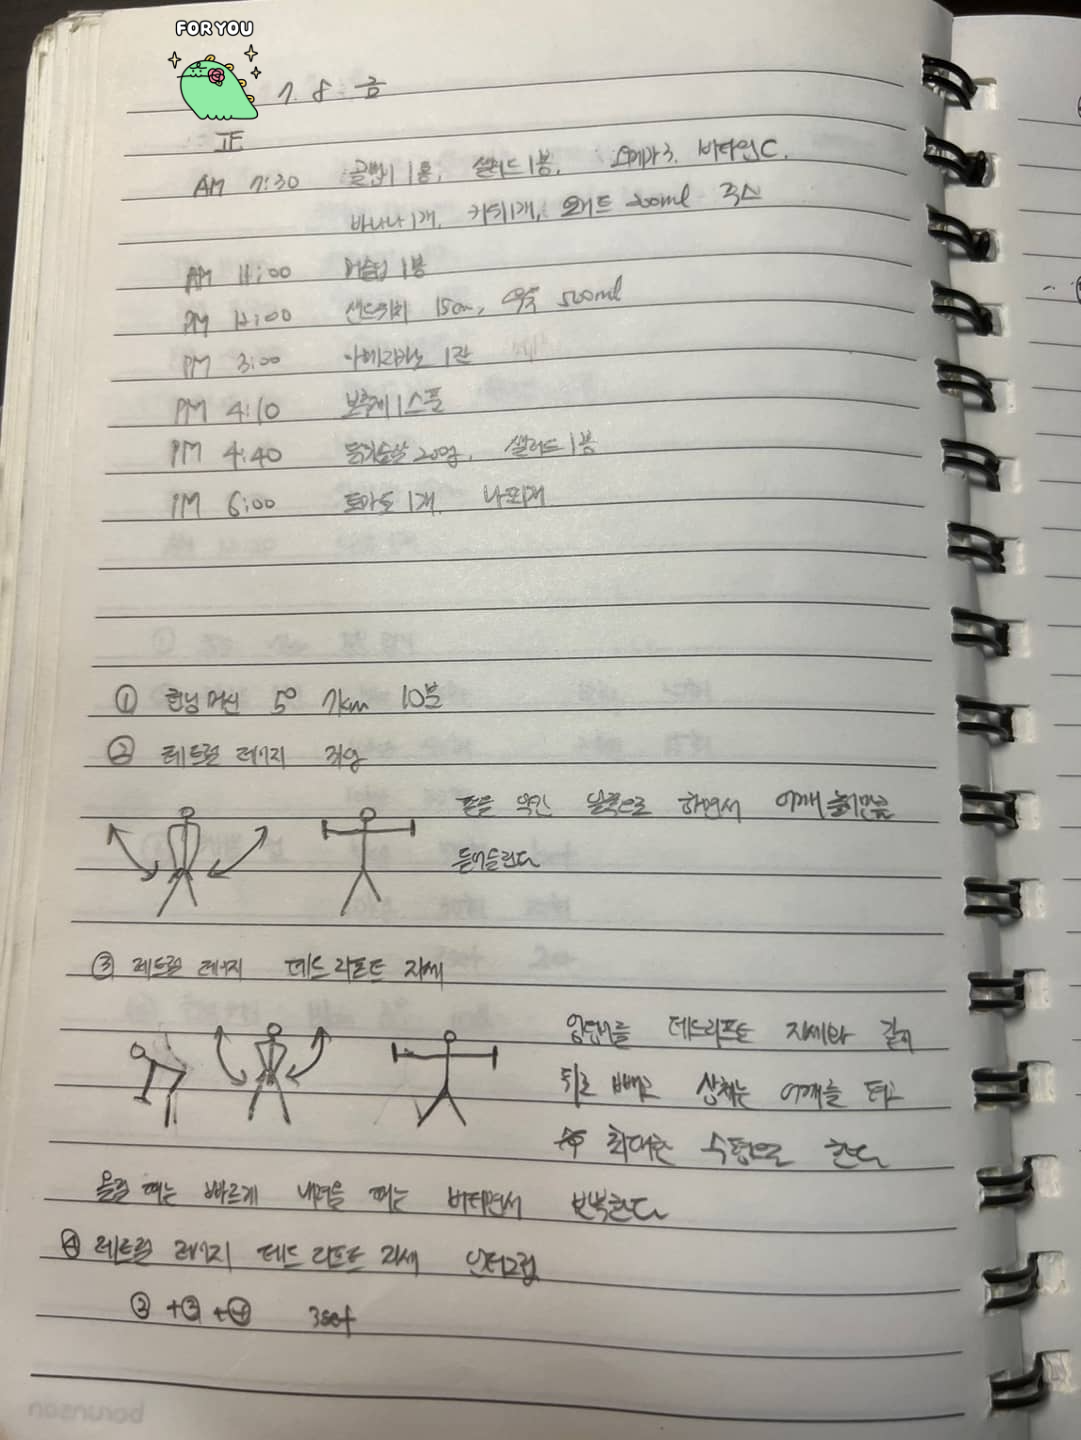 FOR YOU
7. 8. 금
正
AM 7:30 1통, 샐러드 1봉, 오메가3, 비타민C,
바나나 1개, 키위 1개, 오트 200ml 주스
AM 11:00 1봉
PM 12:00 샌드위치 15cm, 500ml
PM 3:00 아메리카노 1잔
PM 4:10 1스푼
PM 4:40 샐러드 1봉
PM 6:00 토마토 1개,
① 런닝머신 5° 7km 10분
② 레트럴 레이지
팔을 약간 하면서 어깨 높이만큼
들어올린다
③ 레트럴 레이지 데드리프트 자세
엉덩이를 데드리프트 자세와 같이
뒤로 빼고 상체는 어깨를 펴고
최대한 수평으로 한다
올릴 때는 빠르게 내려올 때는 버티면서 반복한다
④ 레트럴 레이지 데드리프트 자세 언더그립
② + ③ + ④ 3set
barunson